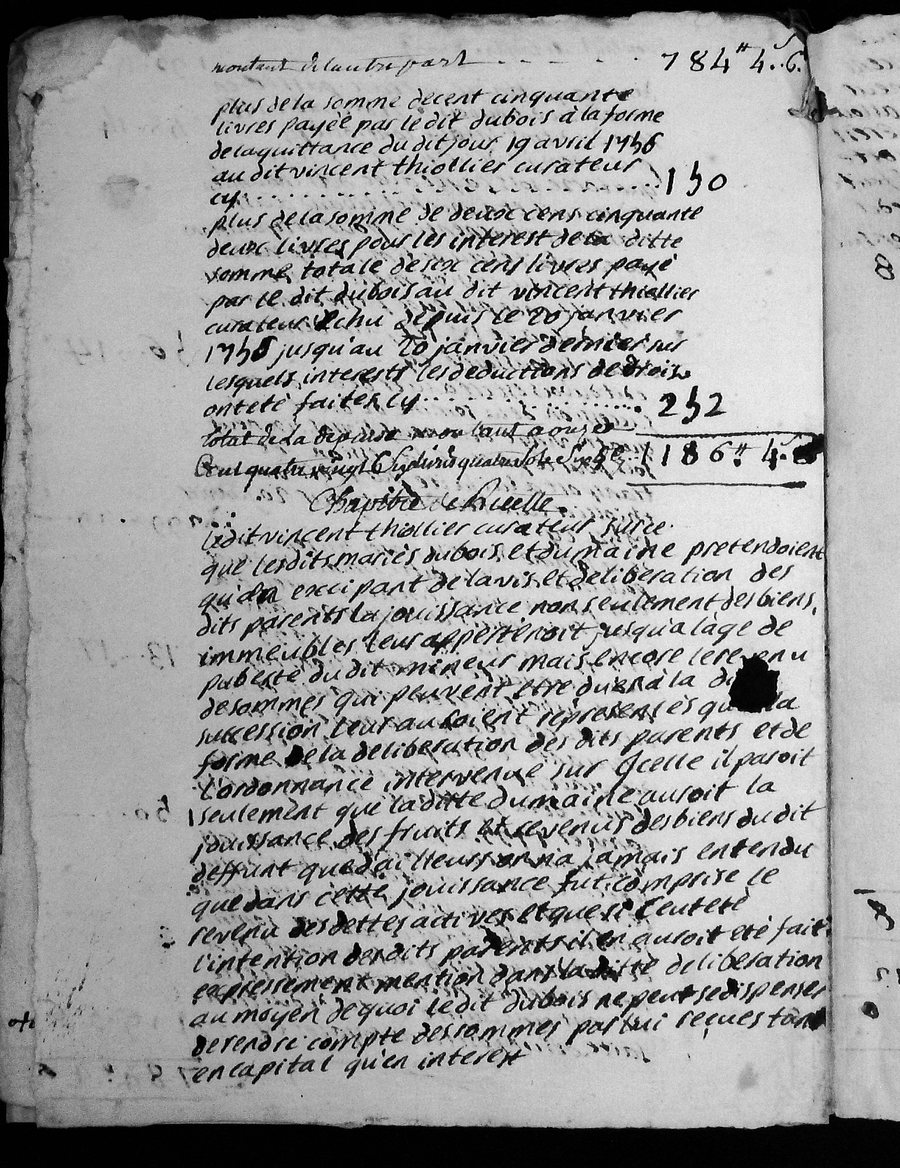 montant delautre part - - - - - - 784tt 4..s6.
plus de la somme decent cinquante
livres payée par le dit dubois à la forme
delaquittance du dit jour 19 avril 1756
au dit vincent thiollier curateur
cy . . . . . . . . . . . . . . . . . . 150
plus de la somme de deux cens cinquante
deux livres pour les interest de la ditte
somme totale de six cens livres payé
par le dit dubois au dit vincent thiollier
curateur Echu depuis le 20 janvier
jusqu'au 20 janvier dernier sur
lesquels interests les deductions de
ont eté faites cy . . . . . . . . . . . . 252
total de la depense montant a onze
Cent quatre vingt Six livres quatre sols Six 1186tt 4.s
Chapitre de
ledit vincent thiollier curateur sur ce
que lesdits mariés dubois et dumaine pretendoient
qu'en excipant de lavis et deliberation des
dits parents la jouissance non seulement des biens
immeubles leur appertenoit jusqu'a lage de
puberté du dit mineur mais encore le revenu
desommes qui peuvent etre dues a la
succession leur auroient representés qu'a la
forme de la deliberation des dits parents et de
l'ordonnance intervenue sur Icelle il paroit
seulement que la ditte dumaine auroit la
jouissance des fruits et revenus des biens du dit
deffunt que d'ailleurs on n'a jamais entendu
que dans cette jouissance fut comprise le
revenu des dettes actives et que si l'eut eté
l'intention des dits parents il en auroit eté fait
expressement mention dans la ditte deliberation
au moyen de quoi le dit dubois ne peut se dispenser
de rendre compte des sommes par lui reçues tant
en capital qu'en interest